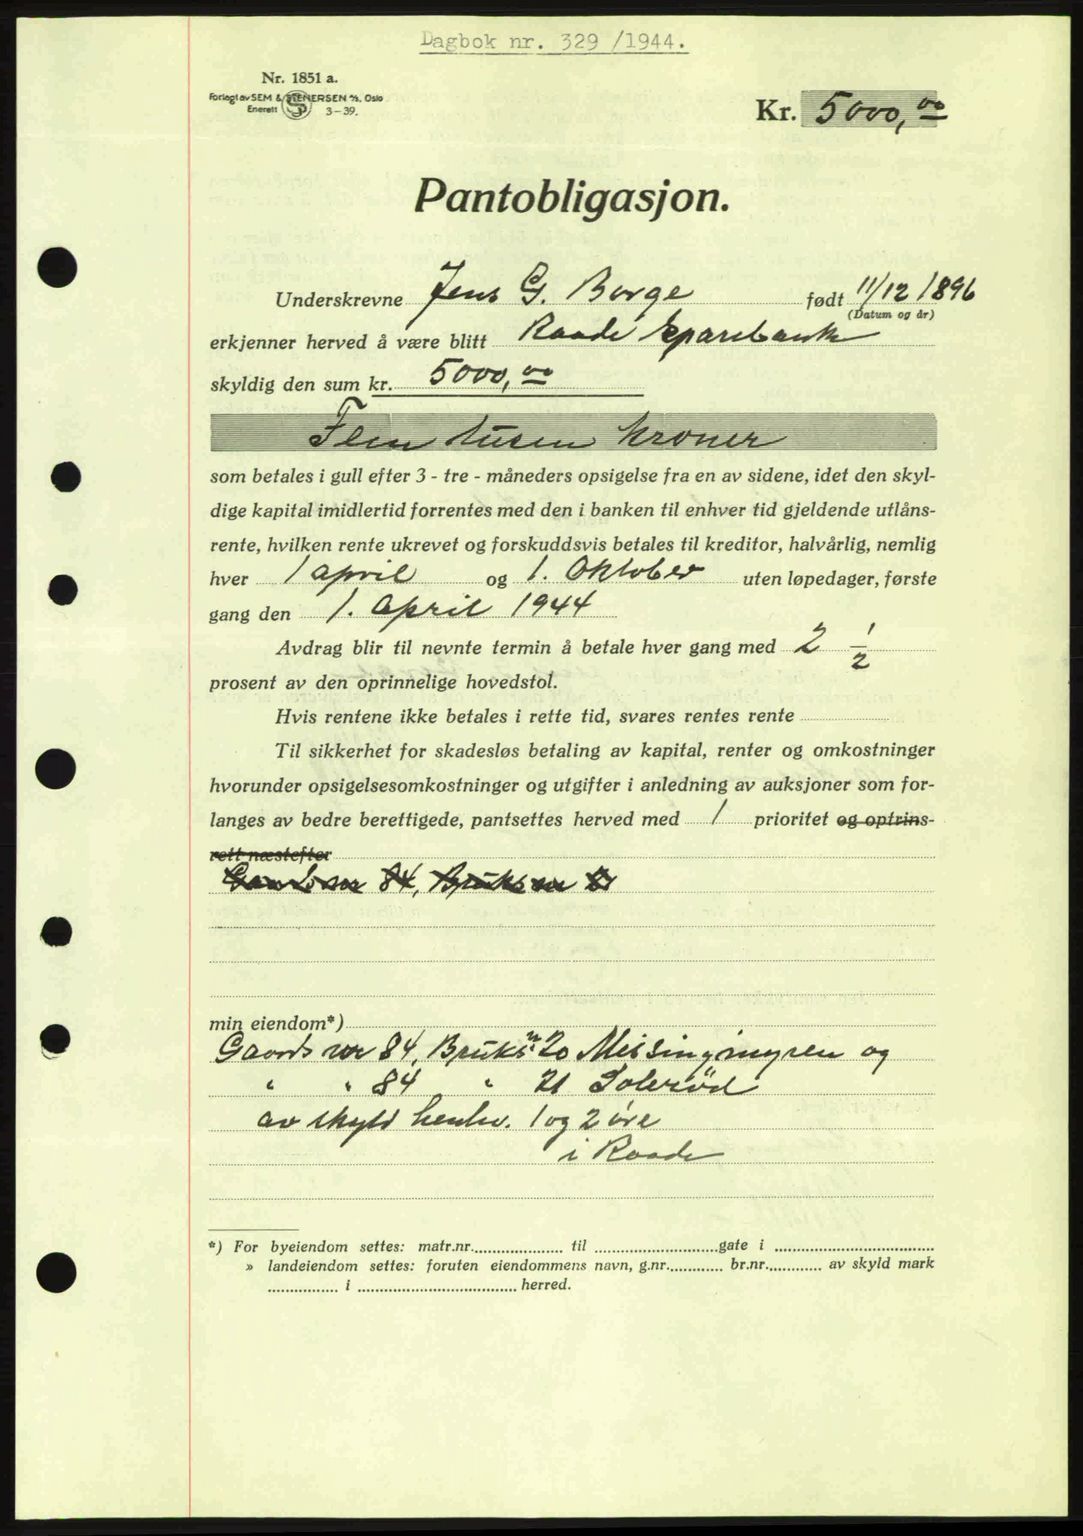 Dagbok nr. 329 /1944.
Nr. 1851 a.
Forlagt av SEM & STENERSEN A/S, Oslo
Enerett 3-39.
Kr. 5000,00
Pantobligasjon.
Underskrevne Jens G. Borge født 11/12 1896
(Datum og år)
erkjenner herved å være blitt Raade Sparebank
skyldig den sum kr. 5000,00
Fem tusen kroner
som betales i gull efter 3 - tre - måneders opsigelse fra en av sidene, idet den skyl-
dige kapital imidlertid forrentes med den i banken til enhver tid gjeldende utlåns-
rente, hvilken rente ukrevet og forskuddsvis betales til kreditor, halvårlig, nemlig
hver 1 april og 1. Oktober uten løpedager, første
gang den 1. April 1944
Avdrag blir til nevnte termin å betale hver gang med 2 1/2
prosent av den oprinnelige hovedstol.
Hvis rentene ikke betales i rette tid, svares rentes rente
Til sikkerhet for skadesløs betaling av kapital, renter og omkostninger
hvorunder opsigelsesomkostninger og utgifter i anledning av auksjoner som for-
langes av bedre berettigede, pantsettes herved med 1 prioritet og optrins-
rett næstefter
84, Bruks
min eiendom*)
Gaards nr 84, Bruks nr 20 Messingmyren og
" " 84 " 21 Solerød
av skyld henhv. 1 og 2 øre
i Raade
*) For byeiendom settes: matr.nr. til gate i
» landeiendom settes: foruten eiendommens navn, g.nr. br.nr. av skyld mark
i herred.